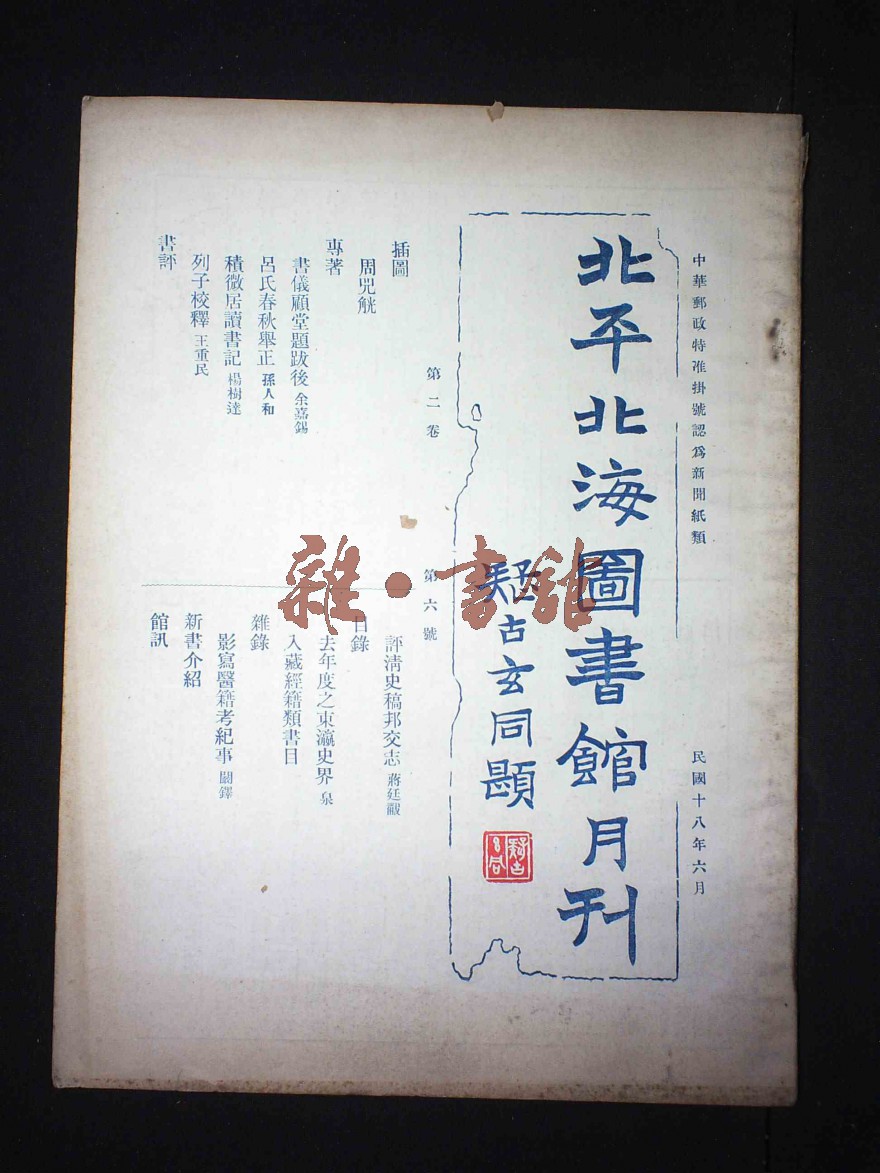 中華郵政特准掛號認爲新聞紙類
民國十八年六月
北平北海圖書館月刊
疑古玄同題
第二卷
第六號
插圖
周兕觥
專著
書儀顧堂題跋後 余嘉錫
呂氏春秋舉正 孫人和
積微居讀書記 楊樹達
列子校釋 王重民
書評
評清史稿邦交志 蔣廷黻
目錄
去年度之東瀛史界 泉
入藏經籍類書目
雜錄
影寫醫籍考紀事 闞鐸
新書介紹
館訊
雜·書館